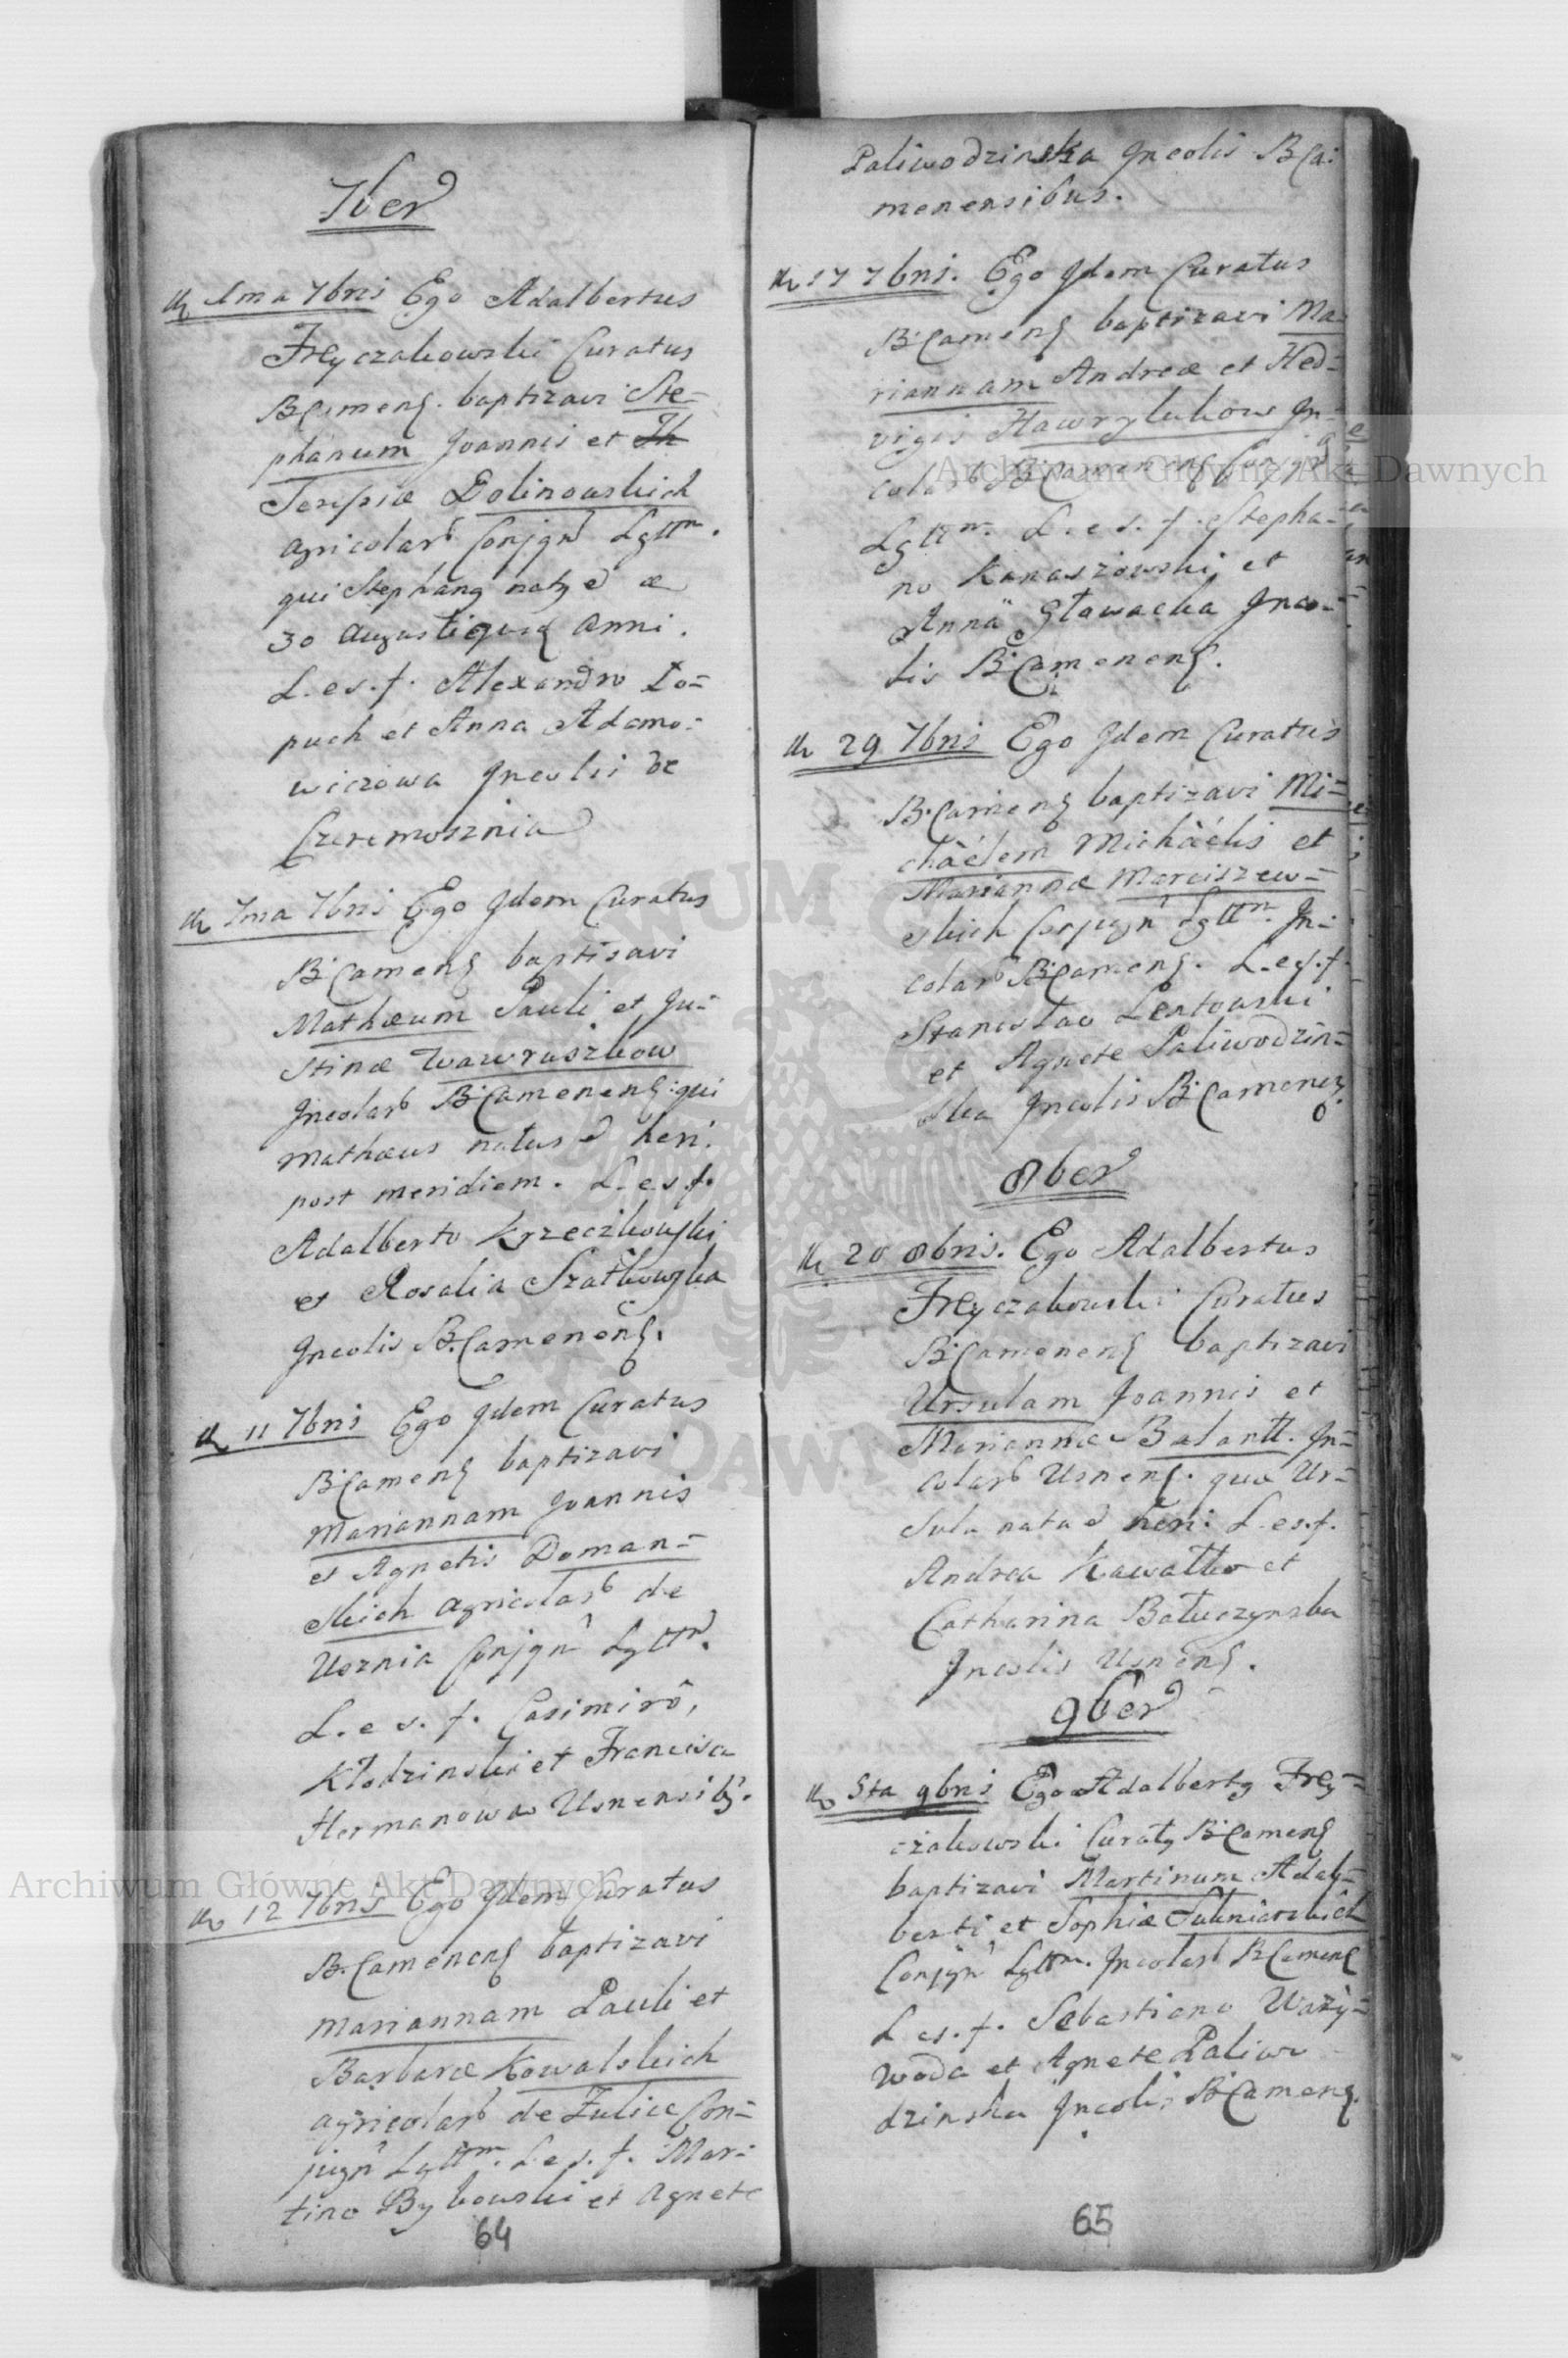 7ber
1ma 7bris Ego Adalbertus
Freyczakowski Curatus
B.Camens. baptizavi Ste=
phanum Joannis et Th
Teresiæ Dolinowskich
agricolarb Conjgu Lgttm.
qui Stephang natg e æ
30 Augusti ejusd anni.
L. e s. f. Alexandro Lo=
puch et Anna Adamo=
wiczowa Incolis de
Czeremosznia
7ma 7bris Ego Idem Curatus
B.Camens baptisavi
Mathæum Pauli et Ju=
stinæ Wawruszkow
Incolarb B.Camenens: qui
Mathæus natus e heri
post meridiem. L. e s. f.
Adalberto Krzeczkowski
et Rosalia Szatkowska
Incolis B.Camenens.
11 7bris Ego Idem Curatus
B.Camens baptizavi
Mariannam Joannis
et Agnetis Doman=
skich agricolarb de
Usznia Conjgu Lgttm.
L. e s. f. Casimirô,
Kłodzinski et Francisca
Hermanowa Usnensibg.
12 7bris Ego Idem Curatus
B.Camenens baptizavi
Mariannam Pauli et
Barbaræ Kowalskich
agricolarb de Zulice Con=
jugu Lgttm. L. e s. f. Mar=
tino Bykowski et Agnete
64
Paliwodzinska Incolis B Ca:
menensibus.
17 7bris. Ego Idem Curatus
B.Camens baptizavi Ma=
riannam Andreæ et Hed=
vigis Hawrylukow In=
colarb B.Camenens Conjgu
Lgttm. L. e s. f. Stepha=
no Kanaszowski et
Anna Głowacka Inco=
lis B.Camenens.
29 7bris Ego Idem Curatus
B.Camens baptizavi Mi=
chàélem Michàélis et
Mariannæ Marciszew=
skich Conjugu Lgttm. In=
colarb B.Camens. L. e s. f.
Stanislao Lentowski
et Agnete Paliwodzin=
ska Incolis B.Camenens.
8ber
20 8bris. Ego Adalbertus
Freyczakowski Curatus
B.Camenens baptizavi
Ursulam Joannis et
Mariannæ Balantt. In=
colarb Usnens. quæ Ur=
sula nata e heri. L. e s. f.
Andrea Kawałko et
Catharina Bałuczynska
Incolis Usnens.
9ber
5ta 9bris Ego Adalbertg Frey=
czakowski Curatg B.Camens
baptizavi Martinum Adal=
berti et Sophiæ Sukniarskich
Conjgu Lgttm. Incolarb B.Camens
L. e s. f. Sebastiano Warzy=
woda et Agnete Paliwo
dzinska Incolis B.Camens.
65
Archiwum Główne Akt Dawnych
Archiwum Główne Akt Dawnych